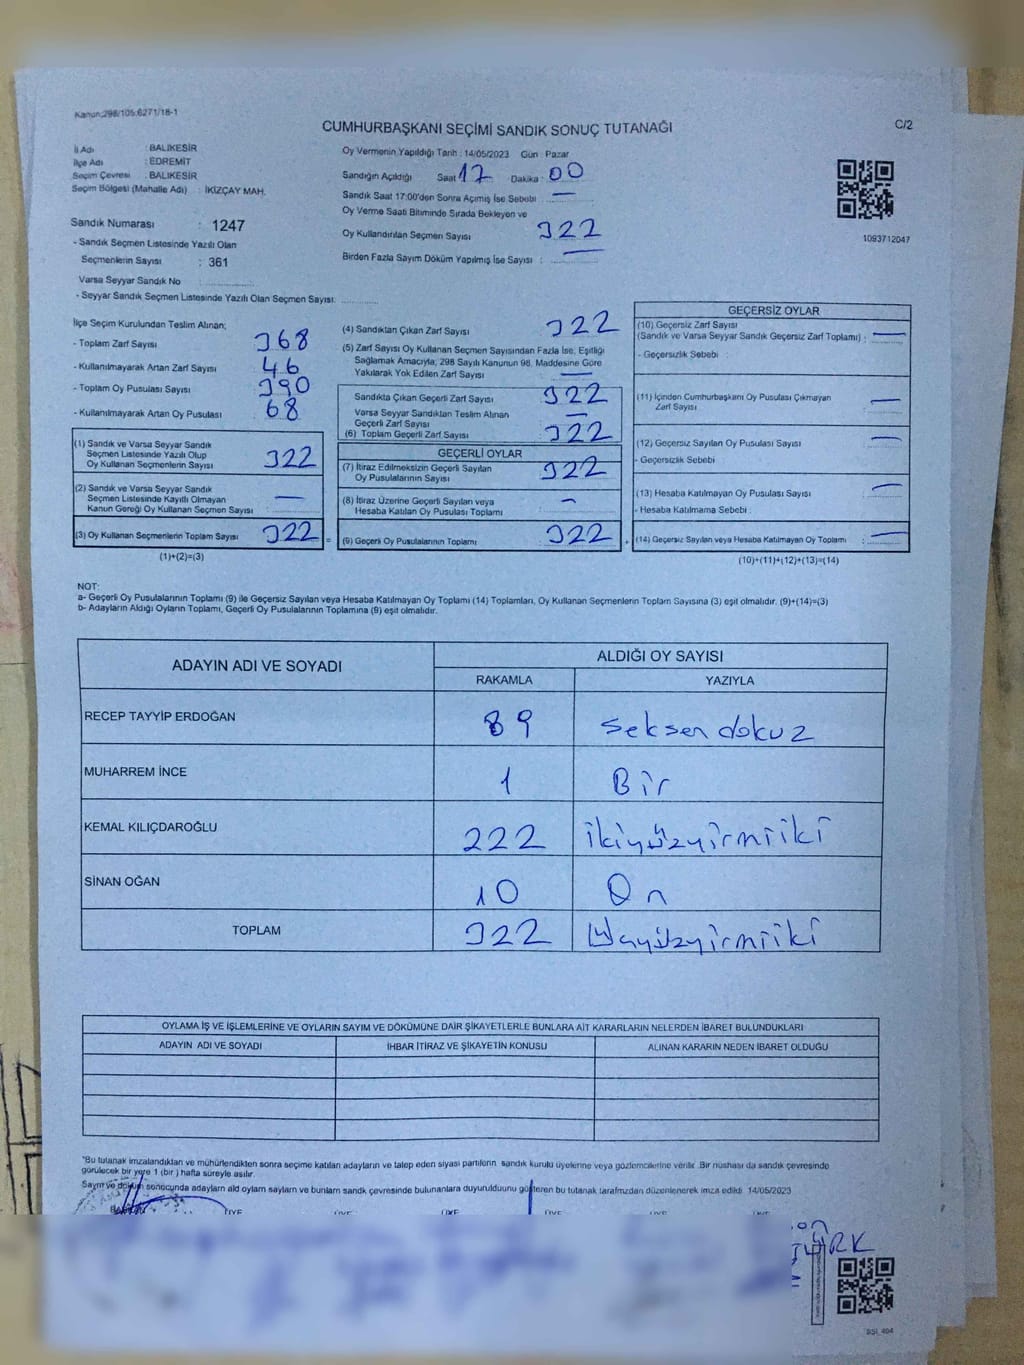 Kanun:298/105;6271/18-1
CUMHURBAŞKANI SEÇİMİ SANDIK SONUÇ TUTANAĞI
C/2
İl Adı : BALIKESİR
İlçe Adı : EDREMİT
Seçim Çevresi : BALIKESİR
Seçim Bölgesi (Mahalle Adı) : İKİZÇAY MAH.
Oy Vermenin Yapıldığı Tarih : 14/05/2023 Gün : Pazar
Sandığın Açıldığı Saat 17 Dakika : 00
Sandık Saat 17:00'den Sonra Açımış İse Sebebi : —
Oy Verme Saati Bitiminde Sırada Bekleyen ve
Oy Kullandırılan Seçmen Sayısı 322
Birden Fazla Sayım Döküm Yapılmış İse Sayısı : —
1093712047
Sandık Numarası : 1247
- Sandık Seçmen Listesinde Yazılı Olan
Seçmenlerin Sayısı : 361
Varsa Seyyar Sandık No :
- Seyyar Sandık Seçmen Listesinde Yazılı Olan Seçmen Sayısı:
İlçe Seçim Kurulundan Teslim Alınan;
- Toplam Zarf Sayısı 368
- Kullanılmayarak Artan Zarf Sayısı 46
- Toplam Oy Pusulası Sayısı 390
- Kullanılmayarak Artan Oy Pusulası 68
(1) Sandık ve Varsa Seyyar Sandık
Seçmen Listesinde Yazılı Olup
Oy Kullanan Seçmenlerin Sayısı 322
(2) Sandık ve Varsa Seyyar Sandık
Seçmen Listesinde Kayıtlı Olmayan
Kanun Gereği Oy Kullanan Seçmen Sayısı : —
(3) Oy Kullanan Seçmenlerin Toplam Sayısı : 322 =
(1)+(2)=(3)
(4) Sandıktan Çıkan Zarf Sayısı 322
(5) Zarf Sayısı Oy Kullanan Seçmen Sayısından Fazla İse, Eşitliği
Sağlamak Amacıyla, 298 Sayılı Kanunun 98. Maddesine Göre
Yakılarak Yok Edilen Zarf Sayısı —
Sandıkta Çıkan Geçerli Zarf Sayısı 322
Varsa Seyyar Sandıktan Teslim Alınan
Geçerli Zarf Sayısı : —
(6) Toplam Geçerli Zarf Sayısı : 322
GEÇERLİ OYLAR
(7) İtiraz Edilmeksizin Geçerli Sayılan
Oy Pusulalarının Sayısı : 322
(8) İtiraz Üzerine Geçerli Sayılan veya
Hesaba Katılan Oy Pusulası Toplamı : —
(9) Geçerli Oy Pusulalarının Toplamı : 322 +
GEÇERSİZ OYLAR
(10) Geçersiz Zarf Sayısı
(Sandık ve Varsa Seyyar Sandık Geçersiz Zarf Toplamı) : —
- Geçersizlik Sebebi :
(11) İçinden Cumhurbaşkanı Oy Pusulası Çıkmayan
Zarf Sayısı : —
(12) Geçersiz Sayılan Oy Pusulası Sayısı : —
- Geçersizlik Sebebi
(13) Hesaba Katılmayan Oy Pusulası Sayısı : —
- Hesaba Katılmama Sebebi :
(14) Geçersiz Sayılan veya Hesaba Katılmayan Oy Toplamı : —
(10)+(11)+(12)+(13)=(14)
NOT:
a- Geçerli Oy Pusulalarının Toplamı (9) ile Geçersiz Sayılan veya Hesaba Katılmayan Oy Toplamı (14) Toplamları, Oy Kullanan Seçmenlerin Toplam Sayısına (3) eşit olmalıdır. (9)+(14)=(3)
b- Adayların Aldığı Oyların Toplamı, Geçerli Oy Pusulalarının Toplamına (9) eşit olmalıdır.
ADAYIN ADI VE SOYADI
ALDIĞI OY SAYISI
RAKAMLA YAZIYLA
RECEP TAYYİP ERDOĞAN 89 seksen dokuz
MUHARREM İNCE 1 Bir
KEMAL KILIÇDAROĞLU 222 ikiyüzyirmiiki
SİNAN OĞAN 10 On
TOPLAM 322
OYLAMA İŞ VE İŞLEMLERİNE VE OYLARIN SAYIM VE DÖKÜMÜNE DAİR ŞİKAYETLERLE BUNLARA AİT KARARLARIN NELERDEN İBARET BULUNDUKLARI
ADAYIN ADI VE SOYADI İHBAR İTİRAZ VE ŞİKAYETİN KONUSU ALINAN KARARIN NEDEN İBARET OLDUĞU
"Bu tutanak imzalandıktan ve mühürlendikten sonra seçime katılan adayların ve talep eden siyasi partilerin sandık kurulu üyelerine veya gözlemcilerine verilir. Bir nüshası da sandık çevresinde
görülecek bir yere 1 (bir) hafta süreyle asılır.
Sayım ve döküm sonucunda adayların aldı oyların sayıları ve bunların sandık çevresinde bulunanlara duyurulduunu gösteren bu tutanak tarafımzdan düzenlenerek imza edildi 14/05/2023
ÜYE ÜYE ÜYE ÜYE ÜYE ÜYE